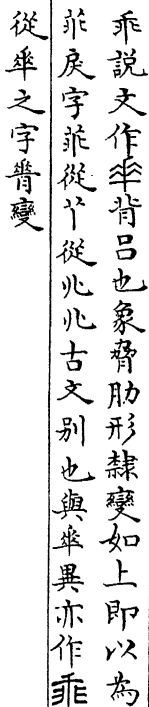 乖說文作𠦬背呂也象脅肋形隸變如上即以為
𦮃戾字𦮃從丫從兆兆古文别也與𠦬異亦作乖
從𠦬之字脊變